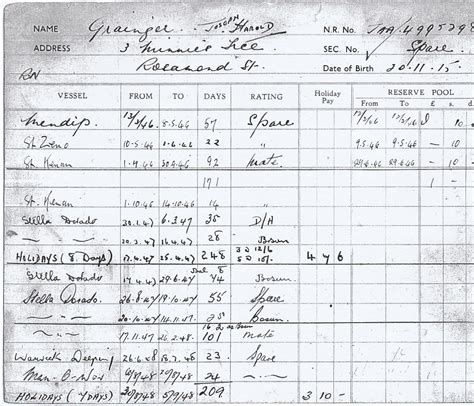 NAME Grainger Joseph Harold N.R. No.
ADDRESS 3 Minnies Tce SEC. No. Spare
Rosamond St. Date of Birth 20-11-15
RN
RESERVE POOL
VESSEL FROM TO DAYS RATING Holiday Pay From To £ s. d.
Mendip 13/3/46 8.5.46 57 Spare 13/3/46 13/3/46 10
St. Zeno 10.5.46 1.6.46 22 " 9.5.46 9.5.46 - 10
St. Kenan 1.9.46 92 Mate - 10
171
St. Kenan 1.10.46 14.10.46 14 "
Stella Dorado 30.1.47 6.3.47 35 D/H
-"- 20.3.47 16.4.47 28 Bosun
HOLIDAYS (8 Days) 17.4.47 25.4.47 248 4 4 6
Stella Dorado 17.4.47 29.6.47 74 Bosun
Stella Dorado 26.8.47 19.10.47 55 Spare
-"- 20.10.47 14.11.47 Bosun
-"- 17.11.47 101 Mate
Warwick Deeping 26.6.48 18.7.48 23 Spare
Man-O-War 24 -"-
HOLIDAYS (7 DAYS) 209 3 10 -